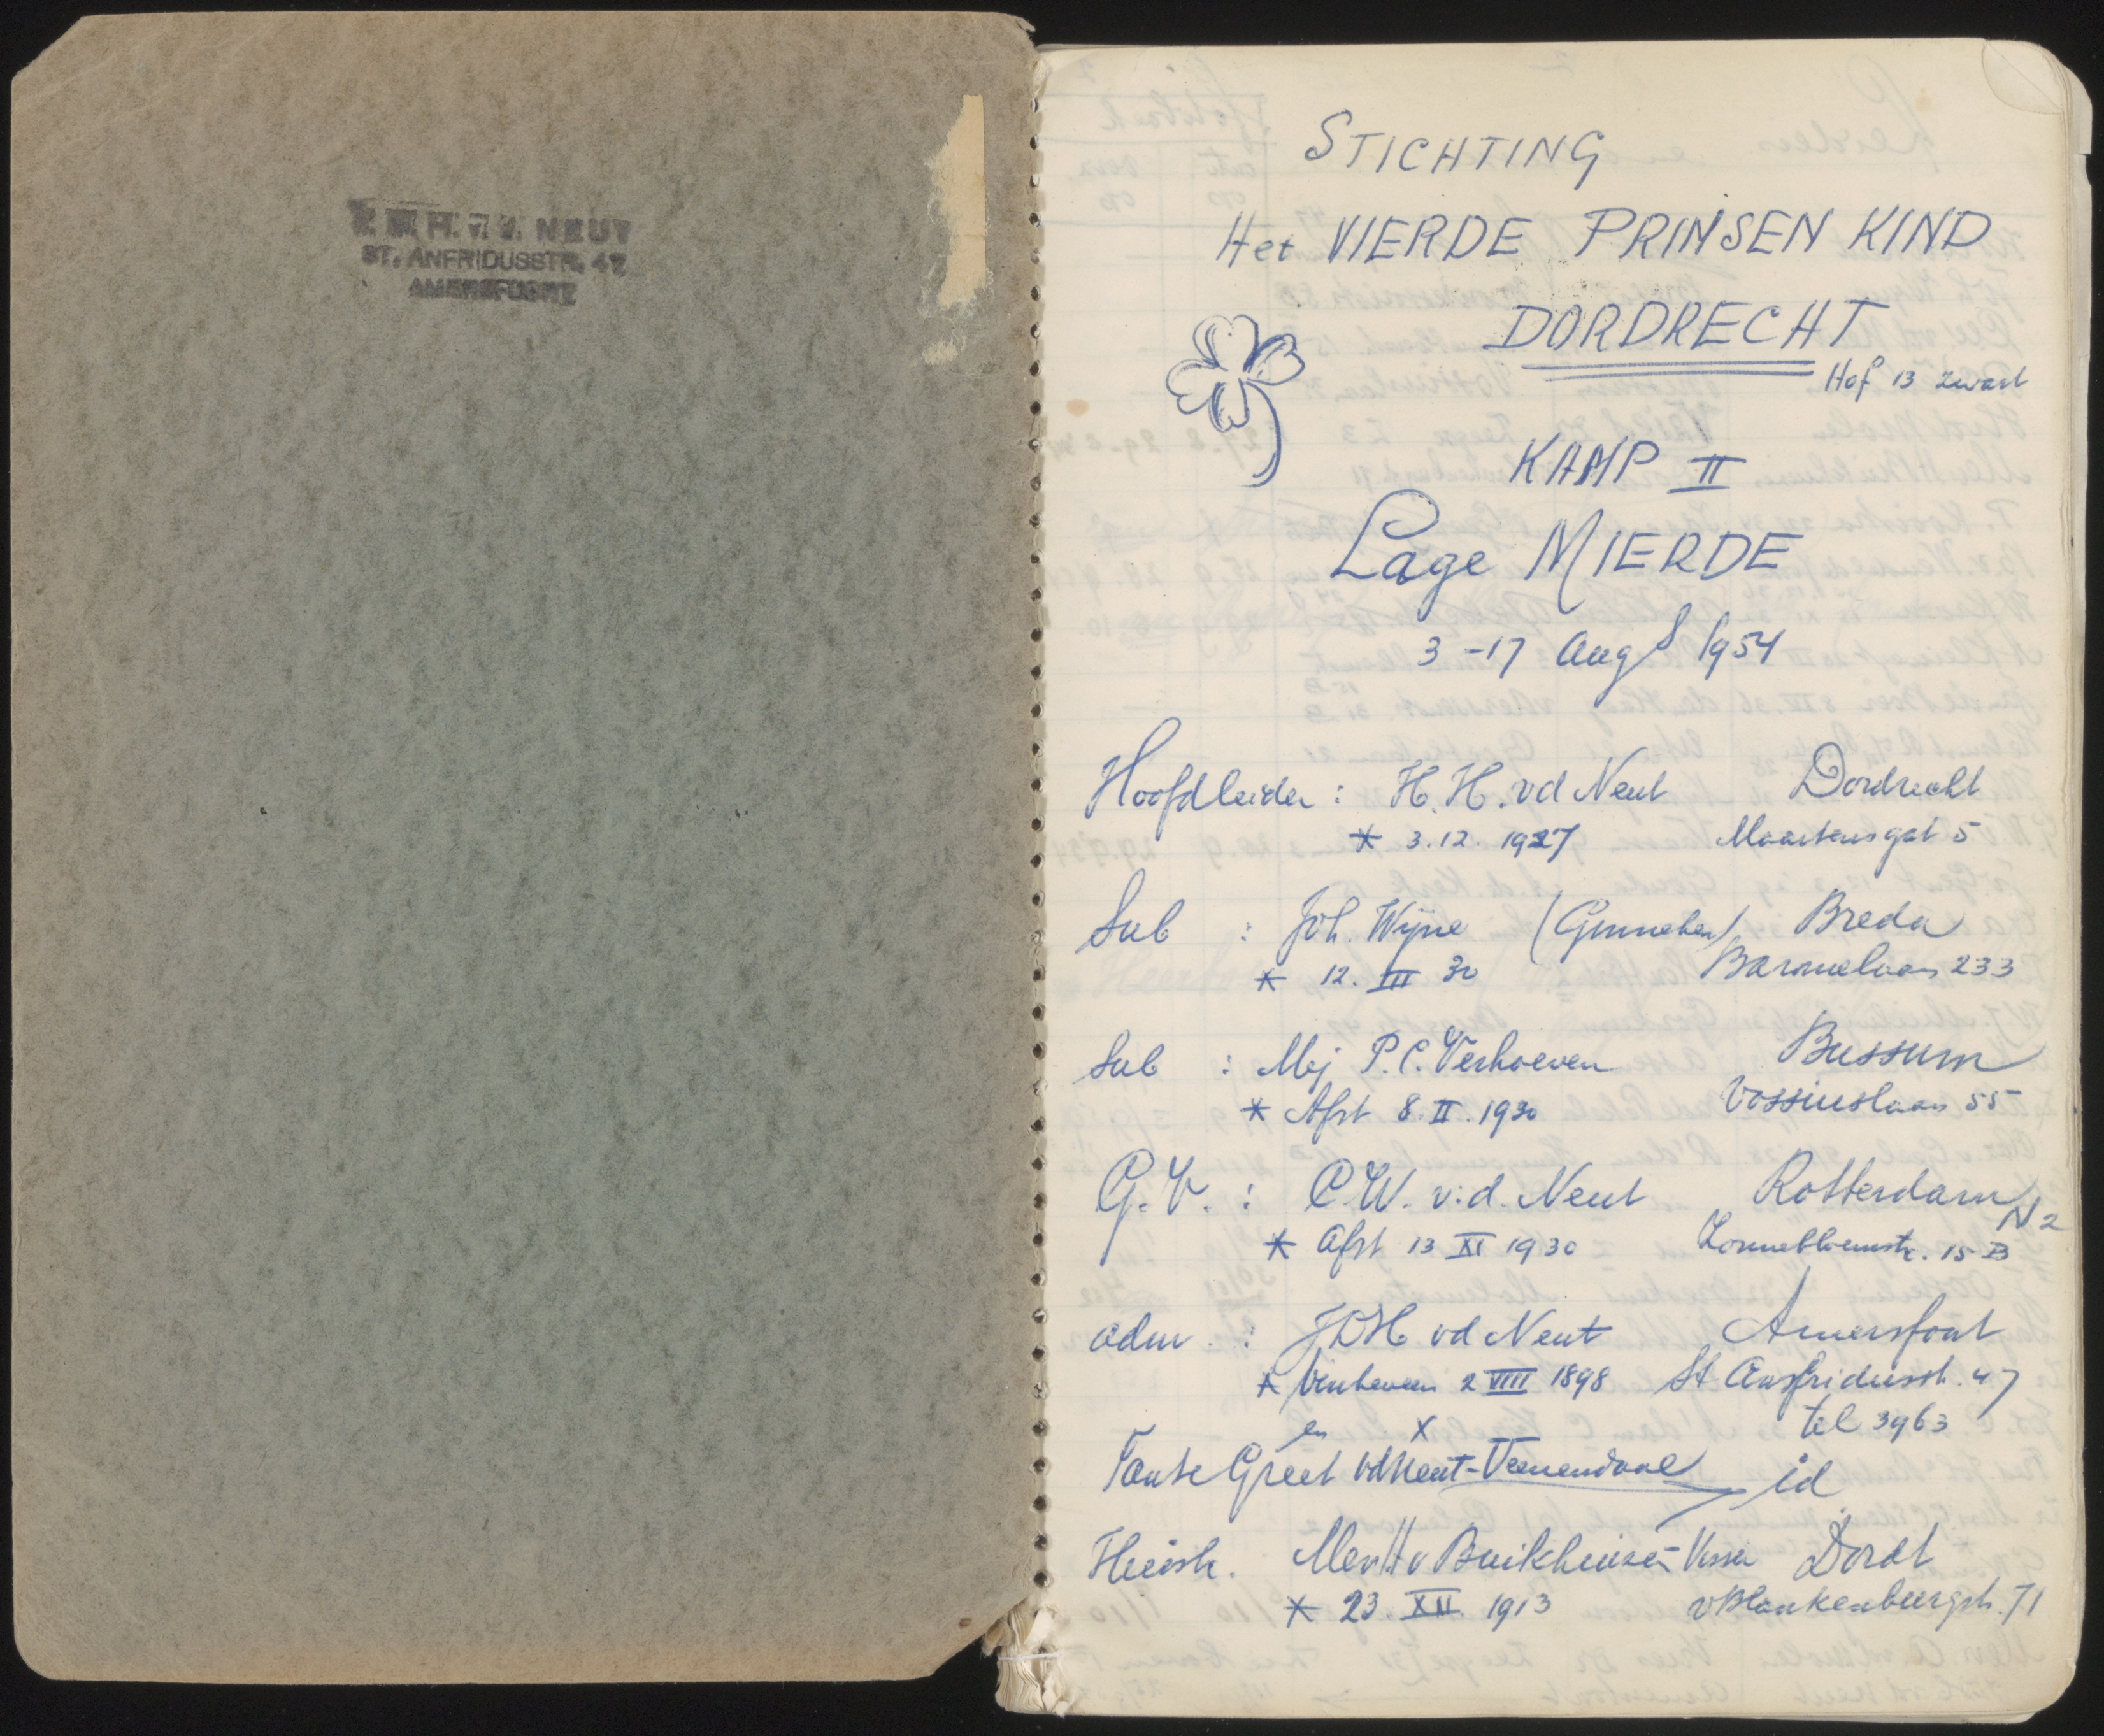 NEUT
ST. ANFRIDUSSTR. 47
AMERSFOORT
STICHTING
Het VIERDE PRINSEN KIND
DORDRECHT
Hof 13 zwart
KAMP II
Lage MIERDE
3-17 Aug 1954
Hoofdleider : H.H. vd Neut Dordrecht
* 3.12. 1927 Maartensgat 5
Sub : Joh. Wijne (Ginneken) Breda
* 12. III 30 Baronielaan 233
Sub : Mej P.C. Verhoeven Bussum
* Afst 8. II. 1930 Vossiuslaan 55
G.V. : C.W. v.d. Neut Rotterdam N2
* Afst 13 XI 1930 Zonnebloemstr. 15 B
adm. : JDH vd Neut Amersfoort
* Vinkeveen 2 VIII 1898 St Ansfridusstr. 47
tel 3963
en x
Tante Greet vd Neut-Veenendaal id
Huish. Mev H v Buikhuizen-Visser Dordt
* 23. XII. 1913 v Blankenburgstr. 71